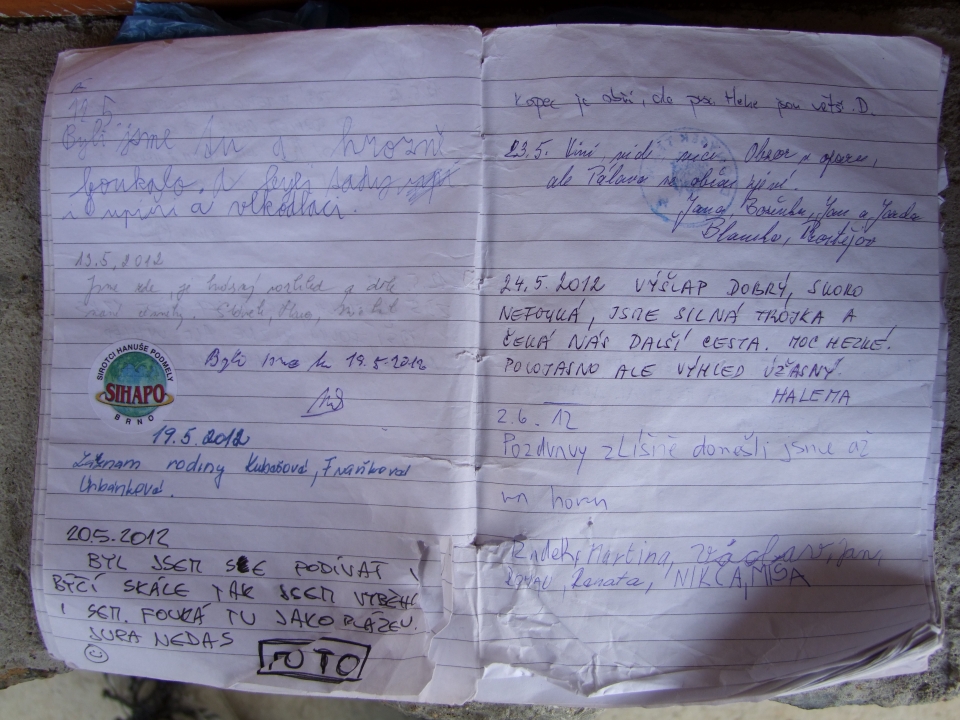 19.5.
Byli jsme tu a hrozně
foukalo. a byli tady
i upíři a vlkodlaci.
13.5.2012
Jsme zde, je krásný rozhled a
SIROTCI HANUŠE PODMELY
SIHAPO
BRNO
Byli sme tu 19.5.2012
19.5.2012
Záznam rodiny Kubešová, Fraňkova
Urbánková.
20.5.2012
BYL JSEM SE PODÍVAT I
BÝČÍ SKÁLE TAK JSEM VYBĚHL
I SEM. FOUKÁ TU JAKO BLÁZEN.
JURA NEDAS
FOTO
Kopec je obří, ale jsou větší :D.
23.5. Viní, nidi nici. Obzor v oparu,
ale Pálava na obzoru
Jana, Boženka, Jan a Jarda
Blansko, Prostějov
24.5.2012 VÝŠLAP DOBRÝ, SKORO
NEFOUKÁ, JSME SILNÁ TROJKA A
ČEKÁ NÁS DALŠÍ CESTA. MOC HEZKÉ.
POLOJASNO ALE VÝHLED ÚŽASNÝ.
HALEMA
2.6.12
Pozdravy z Líšně donesli jsme až
na horu
Radek, Martina, Václav, jan,
Renata, NIKČA, MÍŠA